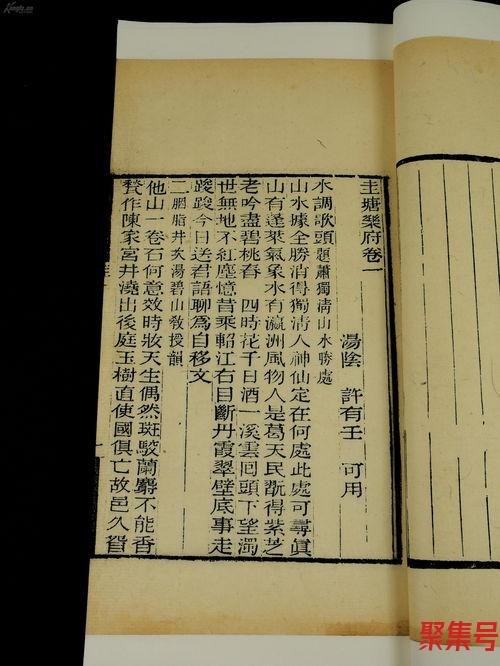 圭塘樂府卷一
湯陰 許有壬 可用
水調歌頭題蕭獨清山水勝處
山水據全勝消得獨清人神仙定在何處此處可尋眞
山有蓬萊氣象水有瀛洲風物人是葛天民飫得紫芝
老吟盡碧桃春 四時花千日酒一溪雲回頭下望濁
世無地不紅塵憶昔乘軺江右目斷丹霞翠壁底事走
踆踆今日送君語聊為自移文
二胭脂井次湯碧山敎授韻
他山一卷石何意效時妝天生偶然斑駮蘭麝不能香
甃作陳家宮井澆出後庭玉樹直使國俱亡故邑久眢
Kongfz.cn
聚集号